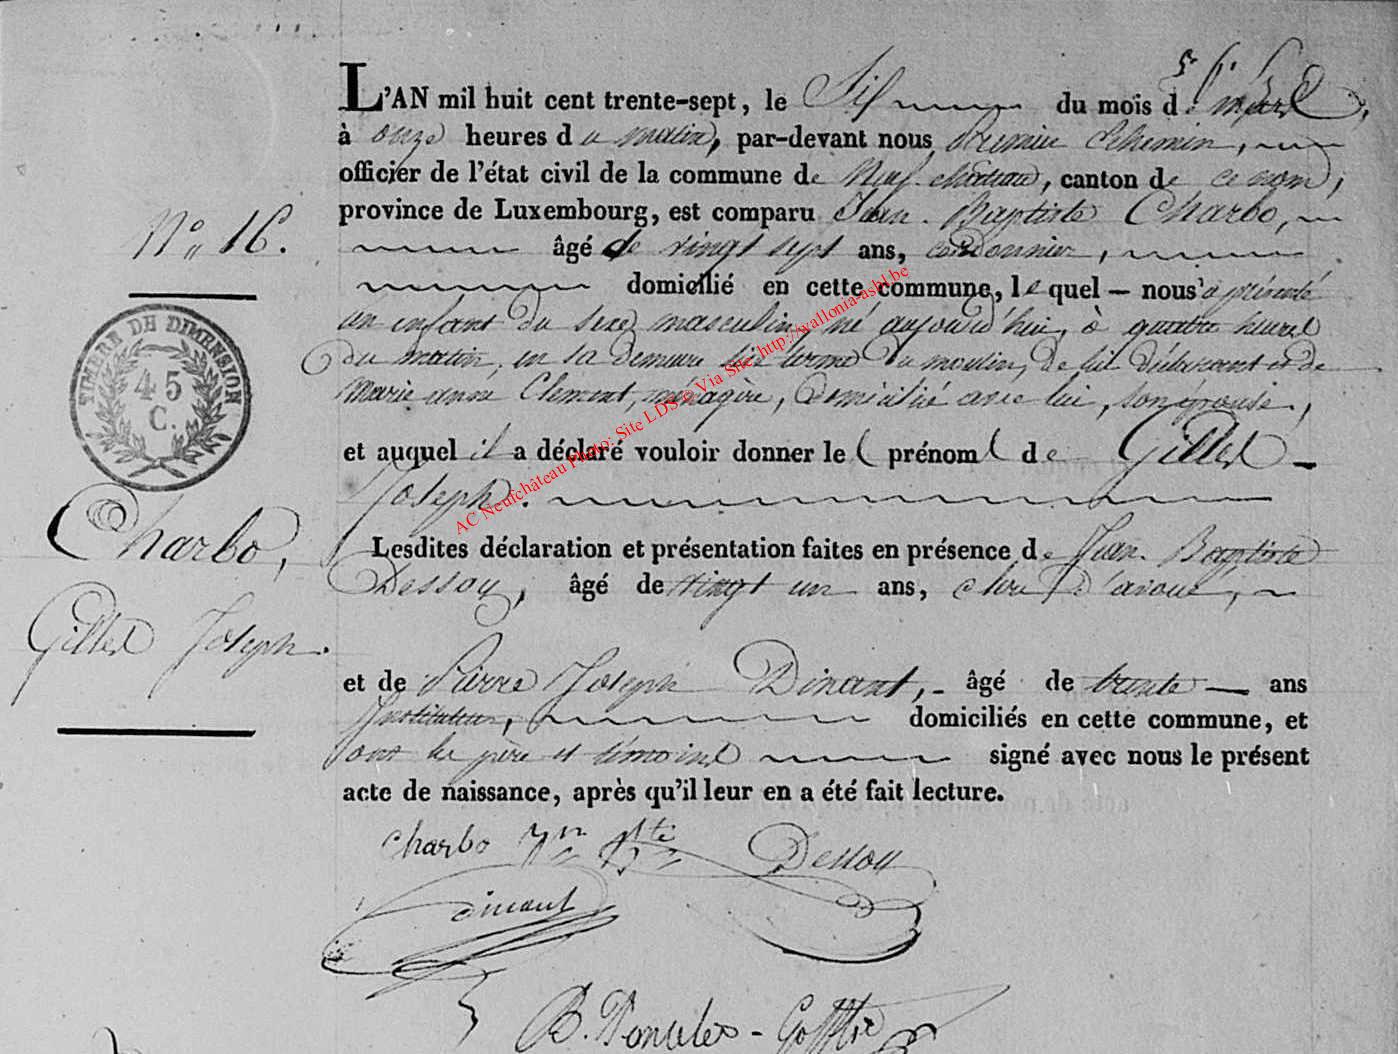 L'AN mil huit cent trente-sept, le Six du mois de mars,
à onze heures du matin, par-devant nous Echemin,
officier de l'état civil de la commune de Neufchateau, canton de ce nom,
province de Luxembourg, est comparu Jean-Baptiste Charbo,
N° 16.
âgé de vingt sept ans, cordonnier,
domicilié en cette commune, lequel — nous a présenté
un enfant du sexe masculin, né aujourd'hui, à quatre heures
du matin, en sa demeure du moulin, de lui déclarant et de
Marie anne Clement, ménagère, domiciliée avec lui, son épouse,
TIMBRE DE DIMENSION
45
C.
et auquel il a déclaré vouloir donner les prénoms de Gilles
Joseph.
AC Neufchâteau Photo: Site LDS & Via Site http://wallonia-asbl.be
Charbo,
Gilles Joseph.
Lesdites déclaration et présentation faites en présence de Jean-Baptiste
Dessoy, âgé de vingt un ans, d'avoué,
et de Pierre Joseph Dinant, âgé de trente — ans
Instituteur, domiciliés en cette commune, et
ont les père et témoins signé avec nous le présent
acte de naissance, après qu'il leur en a été fait lecture.
Charbo Jn Bte Dessoy
Dinant